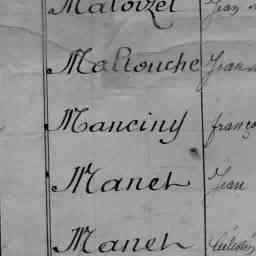 Malouzet Jean
Maltouche Jean
Manciny franço
Manet Jean
Manet Célestin